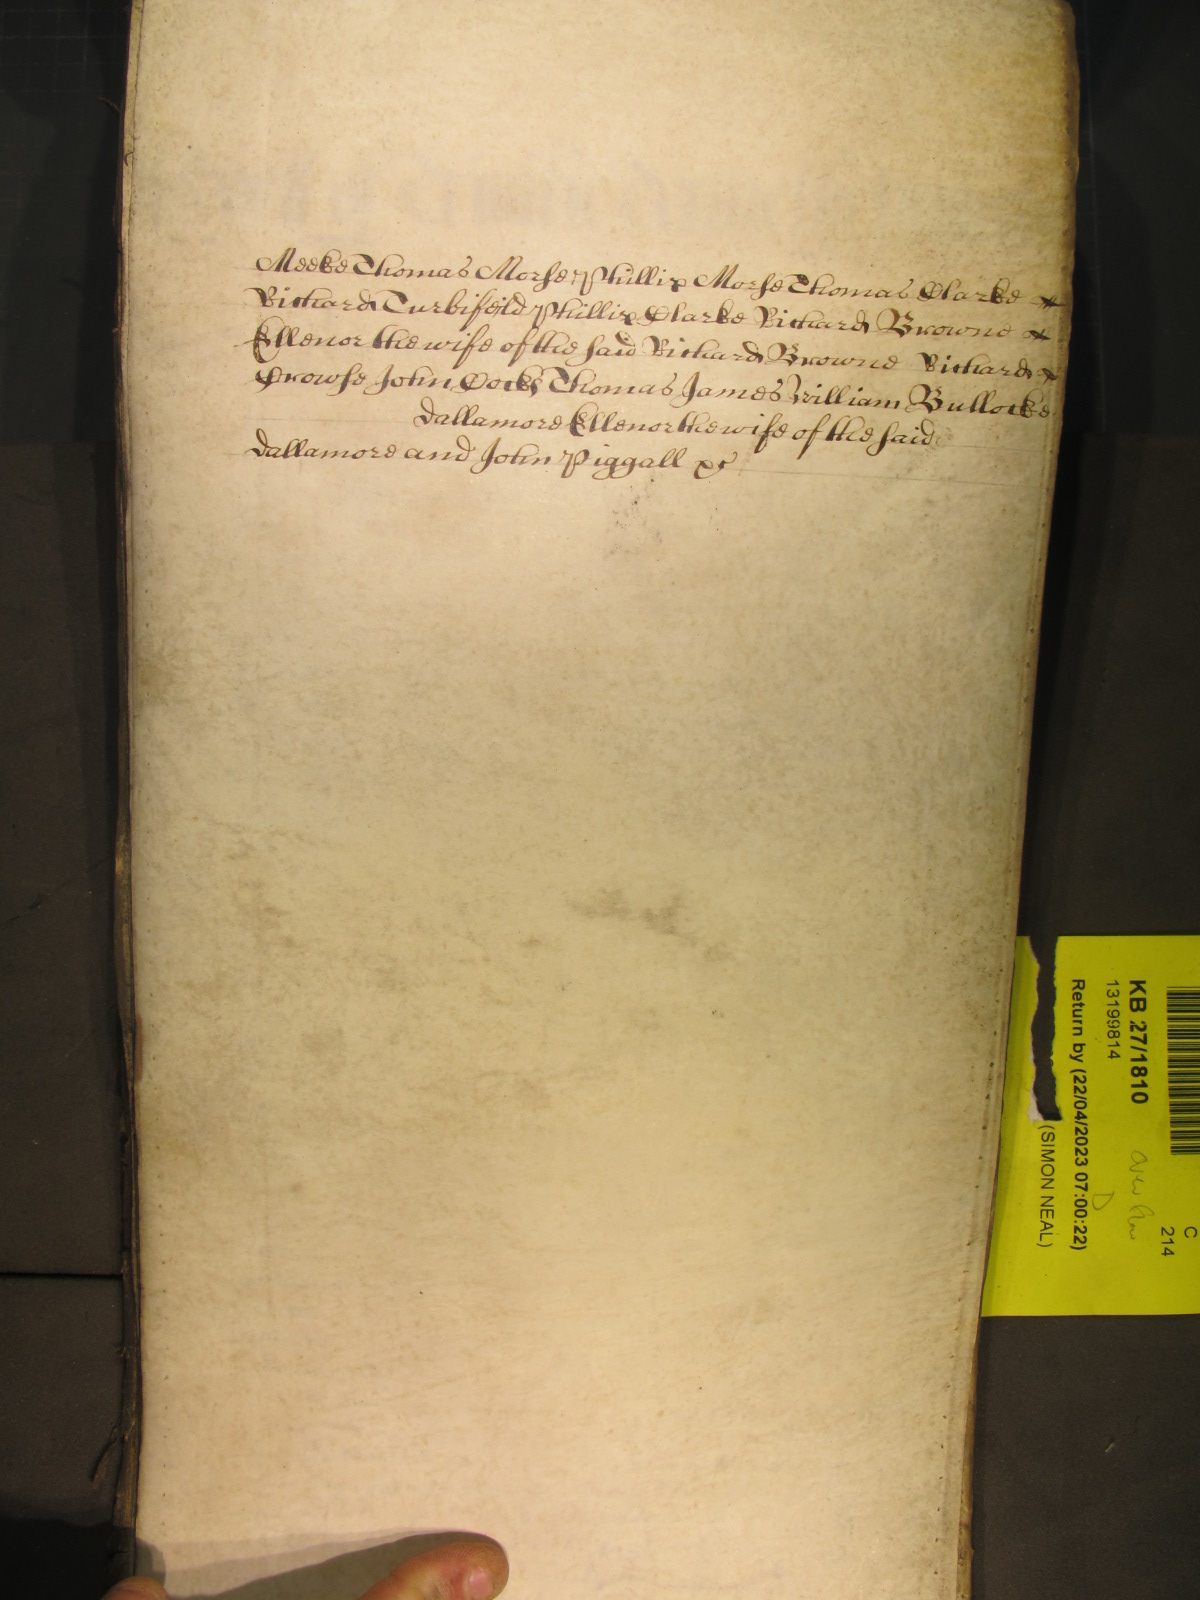 Meeke Thomas Morse Phillip Morse Thomas Clarke
Richard Turbifeild Phillip Clarke Richard Browne
Ellenor the wife of the said Richard Browne Richard
Crowse John Cocks Thomas James William Bullocke
Dallamore Ellenor the wife of the said
Dallamore and John Piggall
C
214
KB 27/1810
13199814
Return by (22/04/2023 07:00:22)
D
(SIMON NEAL)